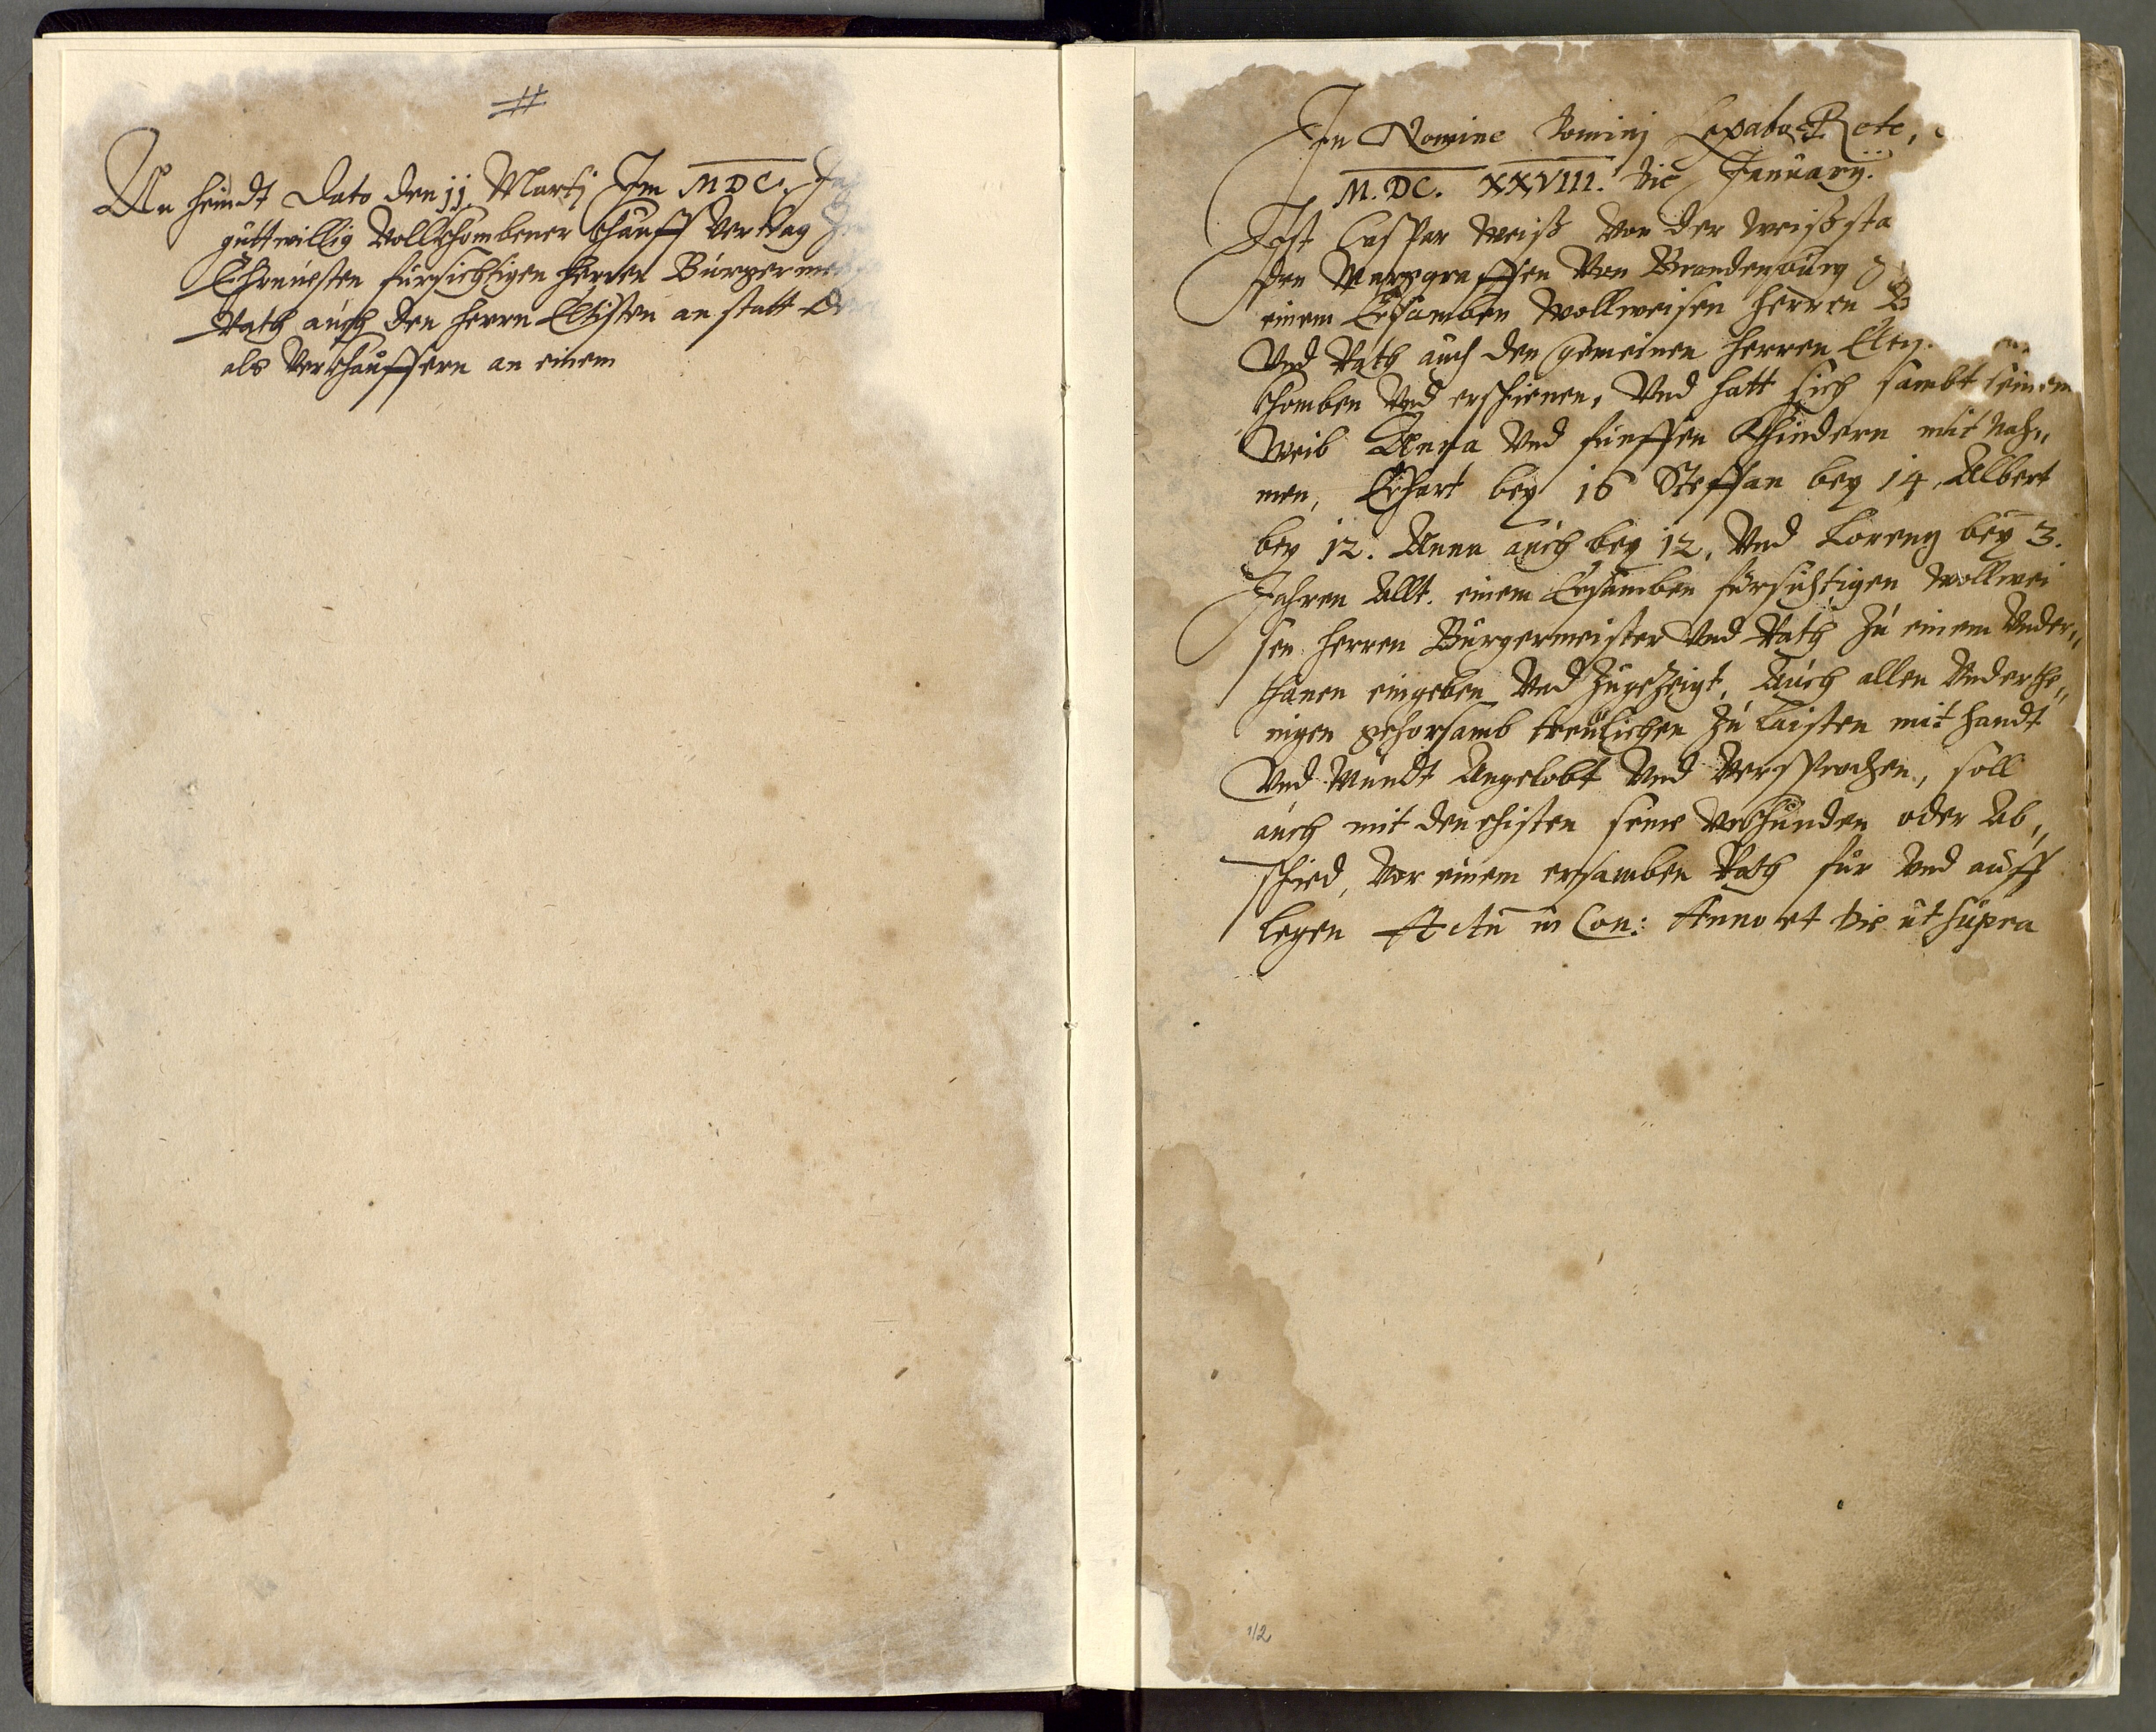 #
An heündt Dato den 11. Martj Im MDC.
guttwillig Vollkhombener khauff Vertrag
Ehrnuesten fürsichtigen herren Burgerme
Rath auch den herrn Eltisten an statt
als Verkhauffern an einem
In Nomine Dominj
M.DC. XXVIII. Die January.
Ist Caspar Weiß Von der Weißsta
den Marggraffen Von Brandenburg
einem Ersamben Wollweisen herren B
Vnd Rath auch den gemeinen herren Elt
khomben Vnd erschienen, Vnd hatt sich sambt seinem
Weib Anna Vnd fünffen Khindern mit Nah„
men, Erhart bey 16 Steffan bey 14, Albert
bey 12. Anna auch bey 12, Vnd Lorenz bey 3.
Jahren Allt. einem Ersamben fürsichtigen Wollwei
sen herren Bürgermeister Vnd Rath Zu einem Vnder„
thanen eingeben Vnd Zugezeigt, Auch allen Vnderthe„
nigen gehorsamb treulichen Zu laisten mit handt
Vnd Mundt Angelobt Vnd Versprochen, soll
auch mit den ehisten seine Vrkhunden oder Ab„
schied, Vor einem ersamben Rath für Vnd auff
legen Actu in Con: Anno et die ut supra
1/2